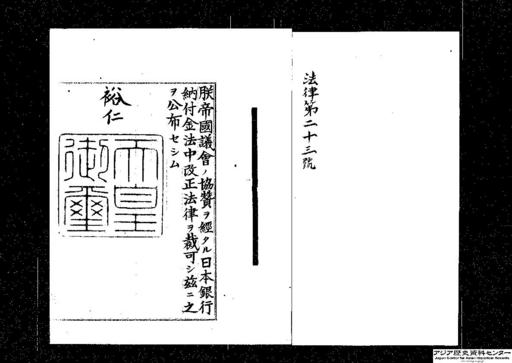 法律第二十三號
朕帝國議會ノ協贊ヲ經タル日本銀行
納付金法中改正法律ヲ裁可シ茲ニ之
ヲ公布セシム
裕仁
天皇
御璽
アジア歴史資料センター
Japan Center for Asian Historical Records